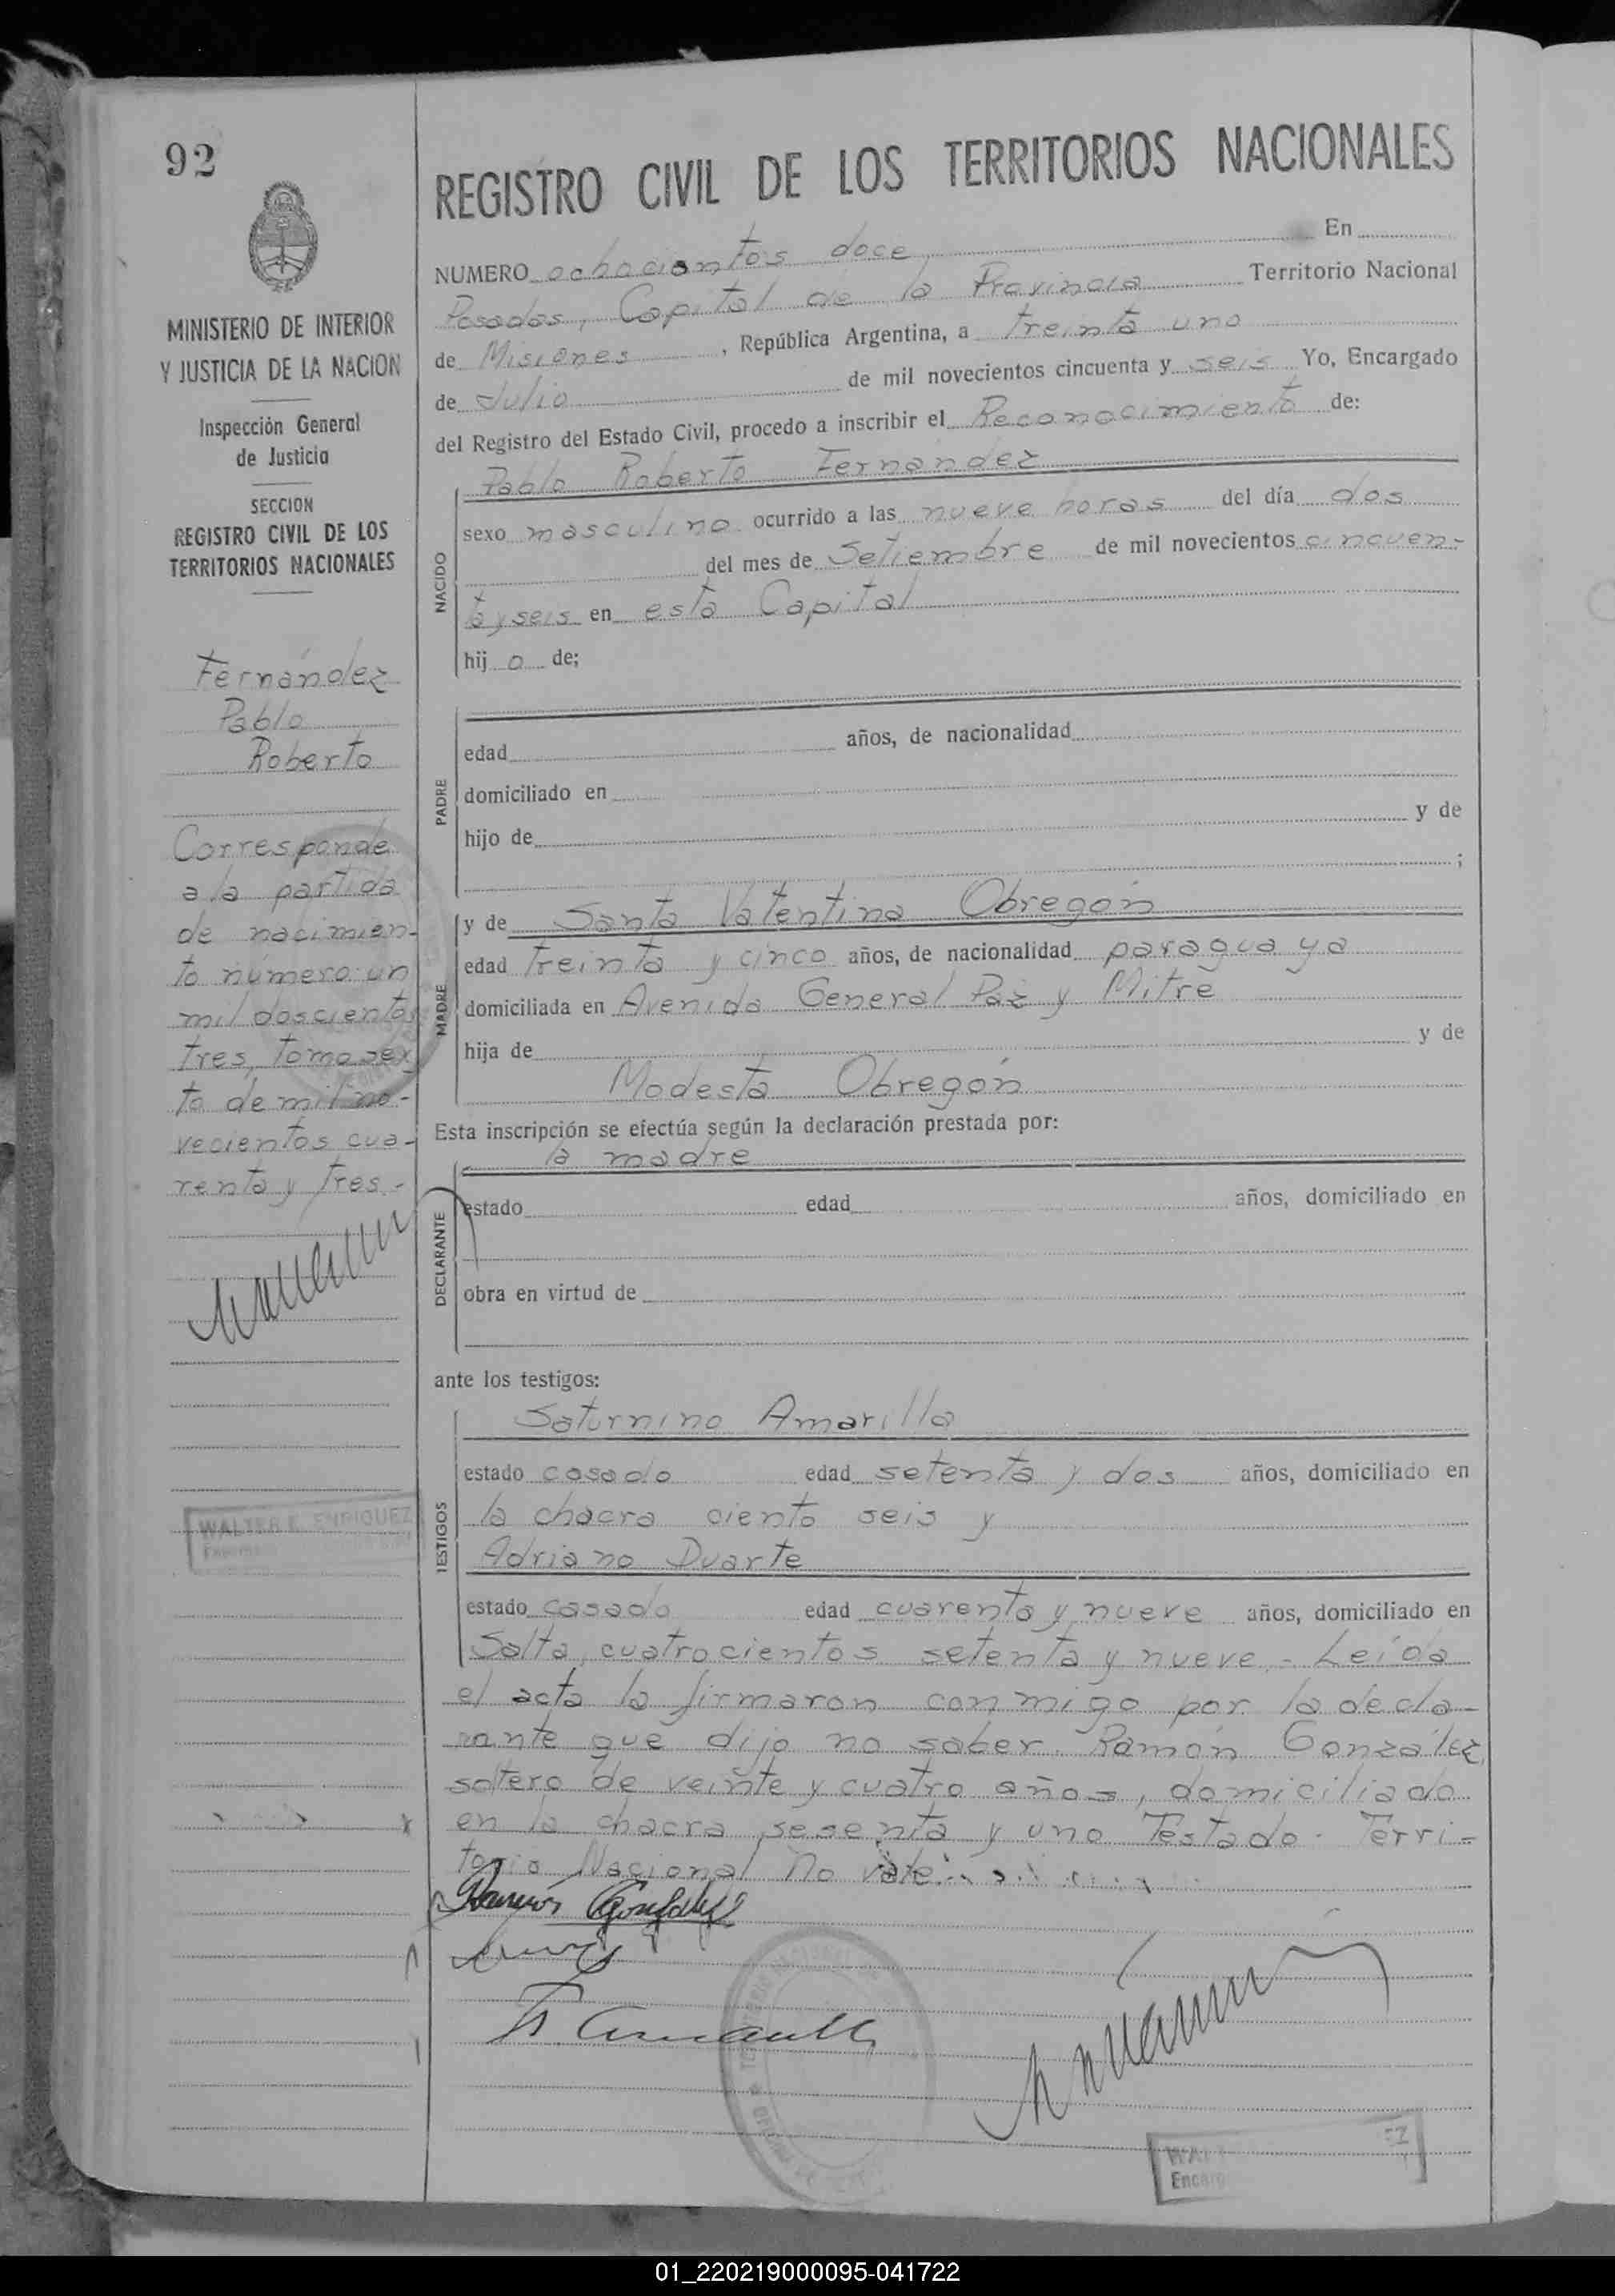 92
MINISTERIO DE INTERIOR
Y JUSTICIA DE LA NACION
Inspección General
de Justicia
SECCION
REGISTRO CIVIL DE LOS
TERRITORIOS NACIONALES
Fernández
Pablo
Roberto
Corresponde
a la partida
de nacimien-
to número un
mil doscientos
tres, tomo sex
to de mil no-
vecientos cua-
renta y tres.-
WALTER E. ENRIQUEZ
REGISTRO CIVIL DE LOS TERRITORIOS NACIONALES
NUMERO ochocientos doce En
Posadas, Capital de la Provincia Territorio Nacional
de Misiones, República Argentina, a treinta uno
de Julio de mil novecientos cincuenta y seis Yo, Encargado
del Registro del Estado Civil, procedo a inscribir el Reconocimiento de:
Pablo Roberto Fernández
NACIDO
sexo masculino ocurrido a las nueve horas del día dos
del mes de Setiembre de mil novecientos cincuen-
ta y seis en esta Capital
hijo de;
PADRE
edad años, de nacionalidad
domiciliado en
hijo de y de
;
MADRE
y de Santa Valentina Obregón
edad treinta y cinco años, de nacionalidad paraguaya
domiciliada en Avenida General Paz y Mitre
hija de y de
Modesta Obregón
Esta inscripción se efectúa según la declaración prestada por:
la madre
DECLARANTE
estado edad años, domiciliado en
obra en virtud de
ante los testigos:
TESTIGOS
Saturnino Amarilla
estado casado edad setenta y dos años, domiciliado en
la chacra ciento seis y
Adriano Duarte
estado casado edad cuarenta y nueve años, domiciliado en
Salta, cuatrocientos setenta y nueve.- Leída
el acta la firmaron conmigo por la decla-
rante que dijo no saber. Ramón González,
soltero de veinte y cuatro años, domiciliado
en la chacra sesenta y uno Testado. Terri-
torio Nacional no vale
Ramón González
01_220219000095-041722